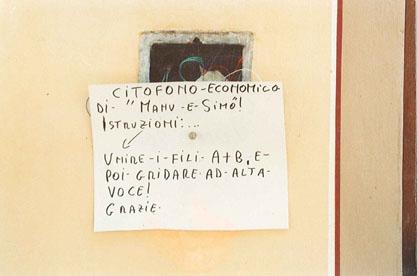 CITOFONO-ECONOMICO
DI- "MANU-E-SIMÓ"!
ISTRUZIONI:...
UNIRE-I-FILI-A+B, E-
POI-GRIDARE-AD-ALTA-
VOCE!
GRAZIE.